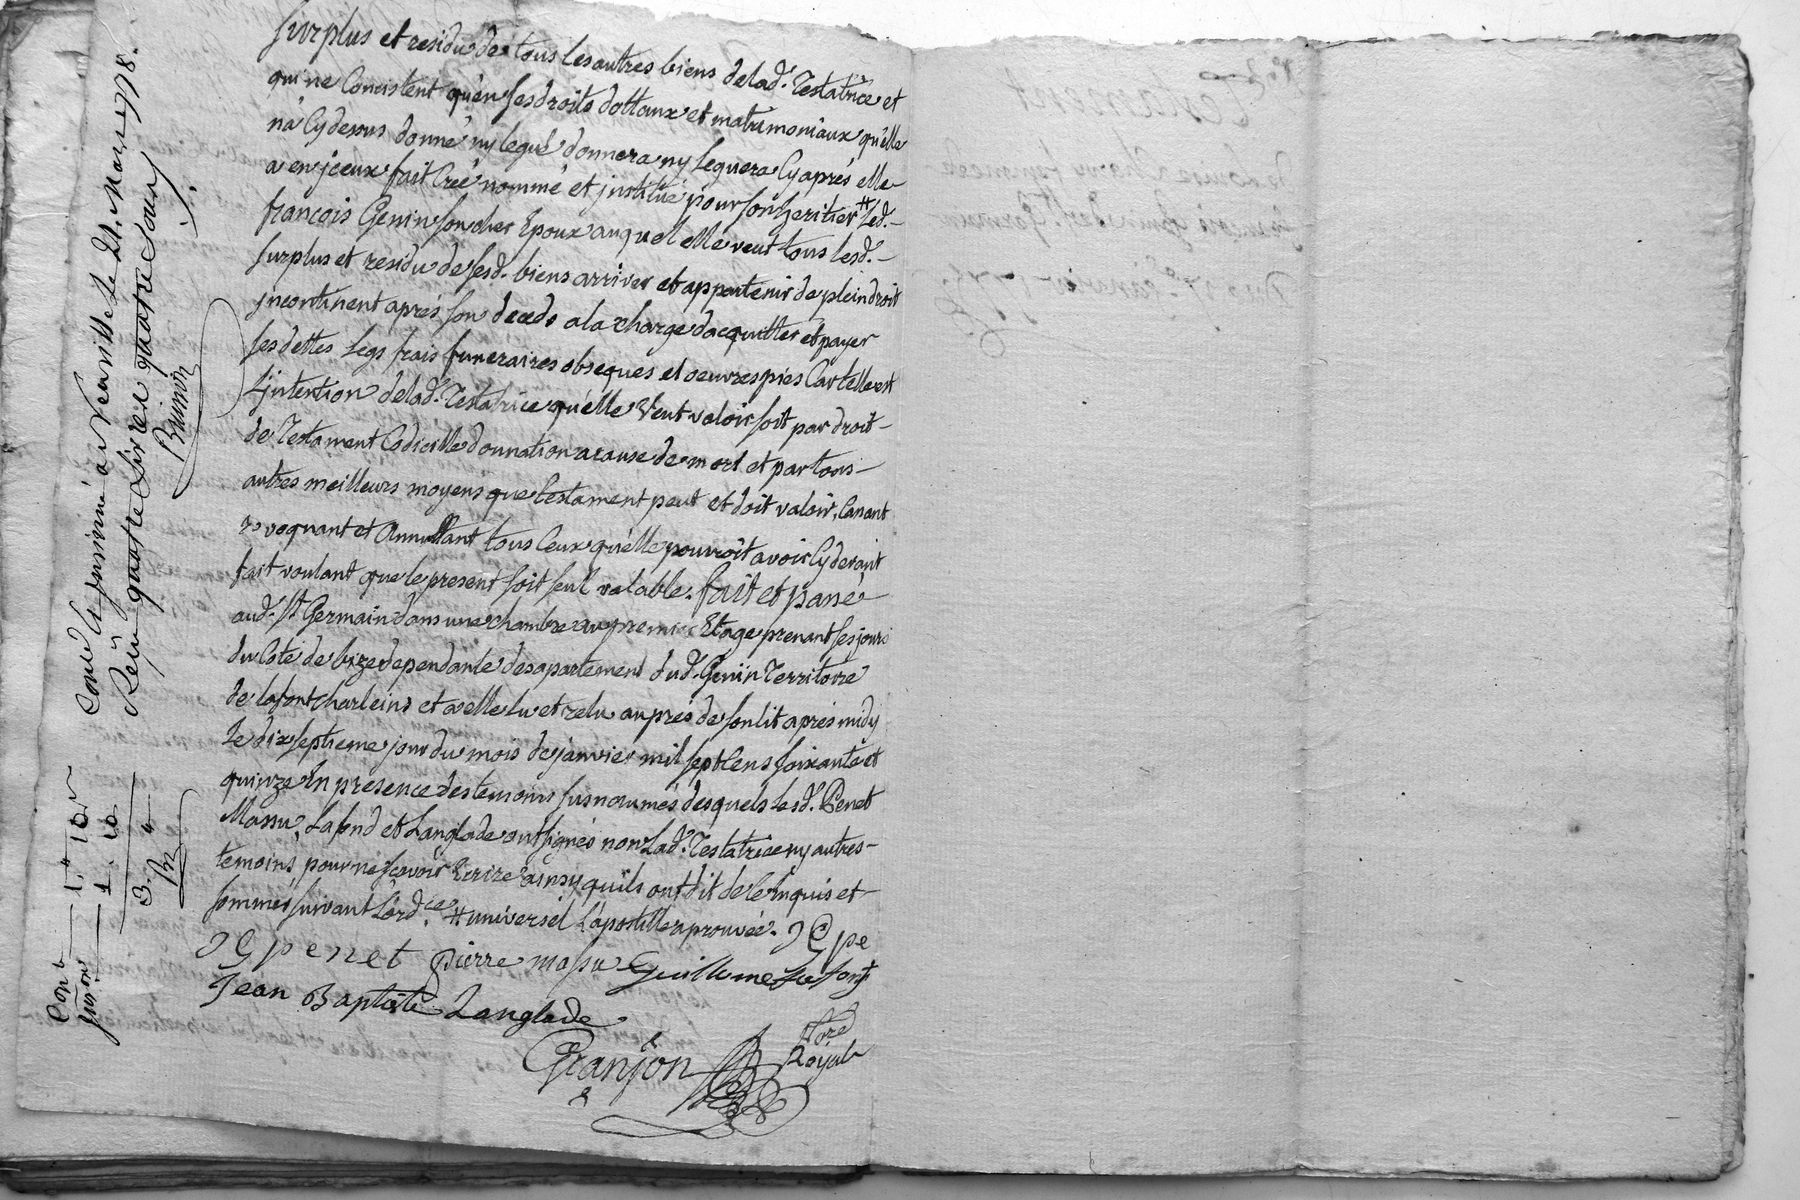 surplus et residu de tous les autres biens de lad. Testatrice et
qui ne Concistent qu'en ses droits dottaux et matrimoniaux qu'elle
n'a Cy desous donné ny legué donnera ny leguera Cy aprés elle
a en jceux fait Créé nommé et jnstitué pour son heritier # led.
françois Genin son cher Epoux auquel elle veut tous lesd.
surplus et residu de sesd. biens arriver et appartenir de plein droit
jncontinent aprés son deceds a la charge dacquitter et payer
ses dettes Legs frais funeraires obseques et oeuvres pies Car telle est
L'jntention de lad. Testatrice qu'elle Veut valoir soit par droit
de Testament Codicille donnation a cause de mort et par tous
autres meilleurs moyens que testament peut et doit valoir, Cassant
revoquant et Annullant tous Ceux qu'elle pouvroit avoir Cy devant
fait voulant que le present soit seul valable. fait et passé
aud. St Germain dans une chambre au premier Etage prenant ses jours
du Coté de bize dependante des apartement dud. Genin Territoire
de lafont charleins et a elle lu et relu auprés de son lit aprés midy
Le dix septieme jour du mois de janvier mil sept Cens soixante et
quinze En presence des temoins susnommés desquels lesd. Penet
Massu, Lafond et Langlade ont signés non Lad. Testatrice ny autres
temoins, pour ne sçavoir Ecrire ainsy quils ont dit de ce Enquis et
sommés suivant L'ord.ce # universel L'apostille aprouvée.
penet pierre masu Guillaume Lafont
Jean Baptiste Langlade
Granjon
Nre
Royal
Controlé
Le 21. Mars 1778.
Reçu quatre Livres quatre sous
Brunon
Cont 1. 10
1. 10
3. "